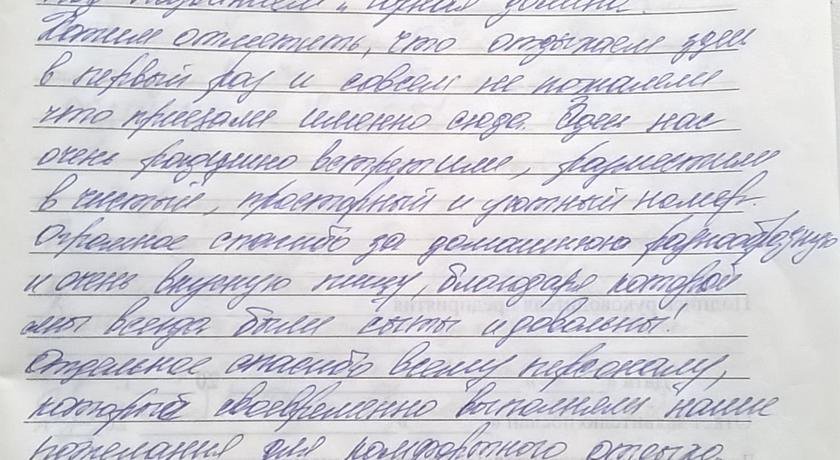 под названием "Идная долина".
Хотим отметить, что отдыхаем здесь
в первый раз и совсем не пожалели
что приехали именно сюда. Здесь нас
очень радушно встретили, разместили
в чистый, просторный и уютный номер.
Огромное спасибо за домашнюю разнообразную
и очень вкусную пищу, благодаря которой
мы всегда были сыты и довольны!
Отдельное спасибо всему персоналу,
который своевременно выполняли наши
пожелания для комфортного отдыха.